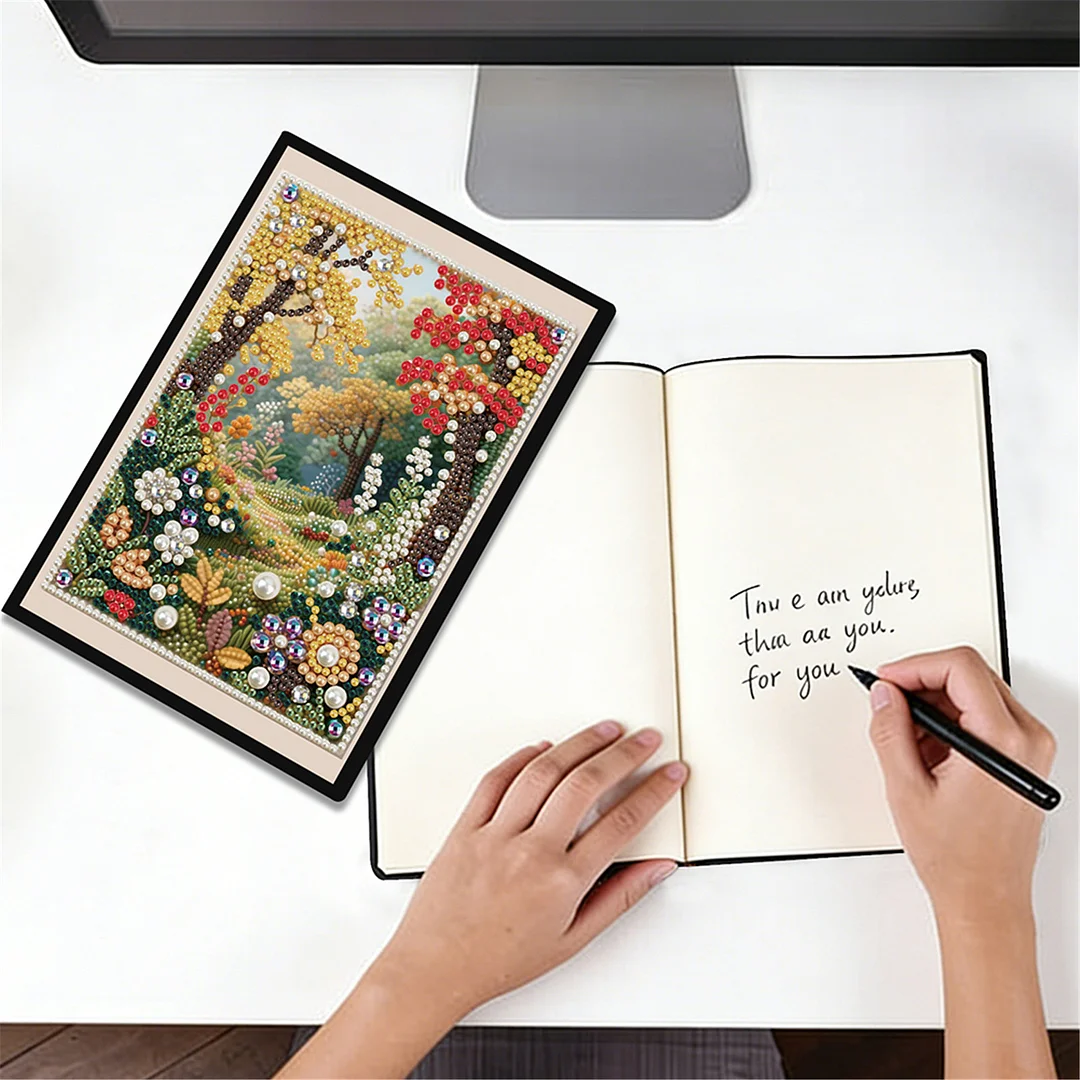 Tnu e am yclurs,
thıa aa you.
for you